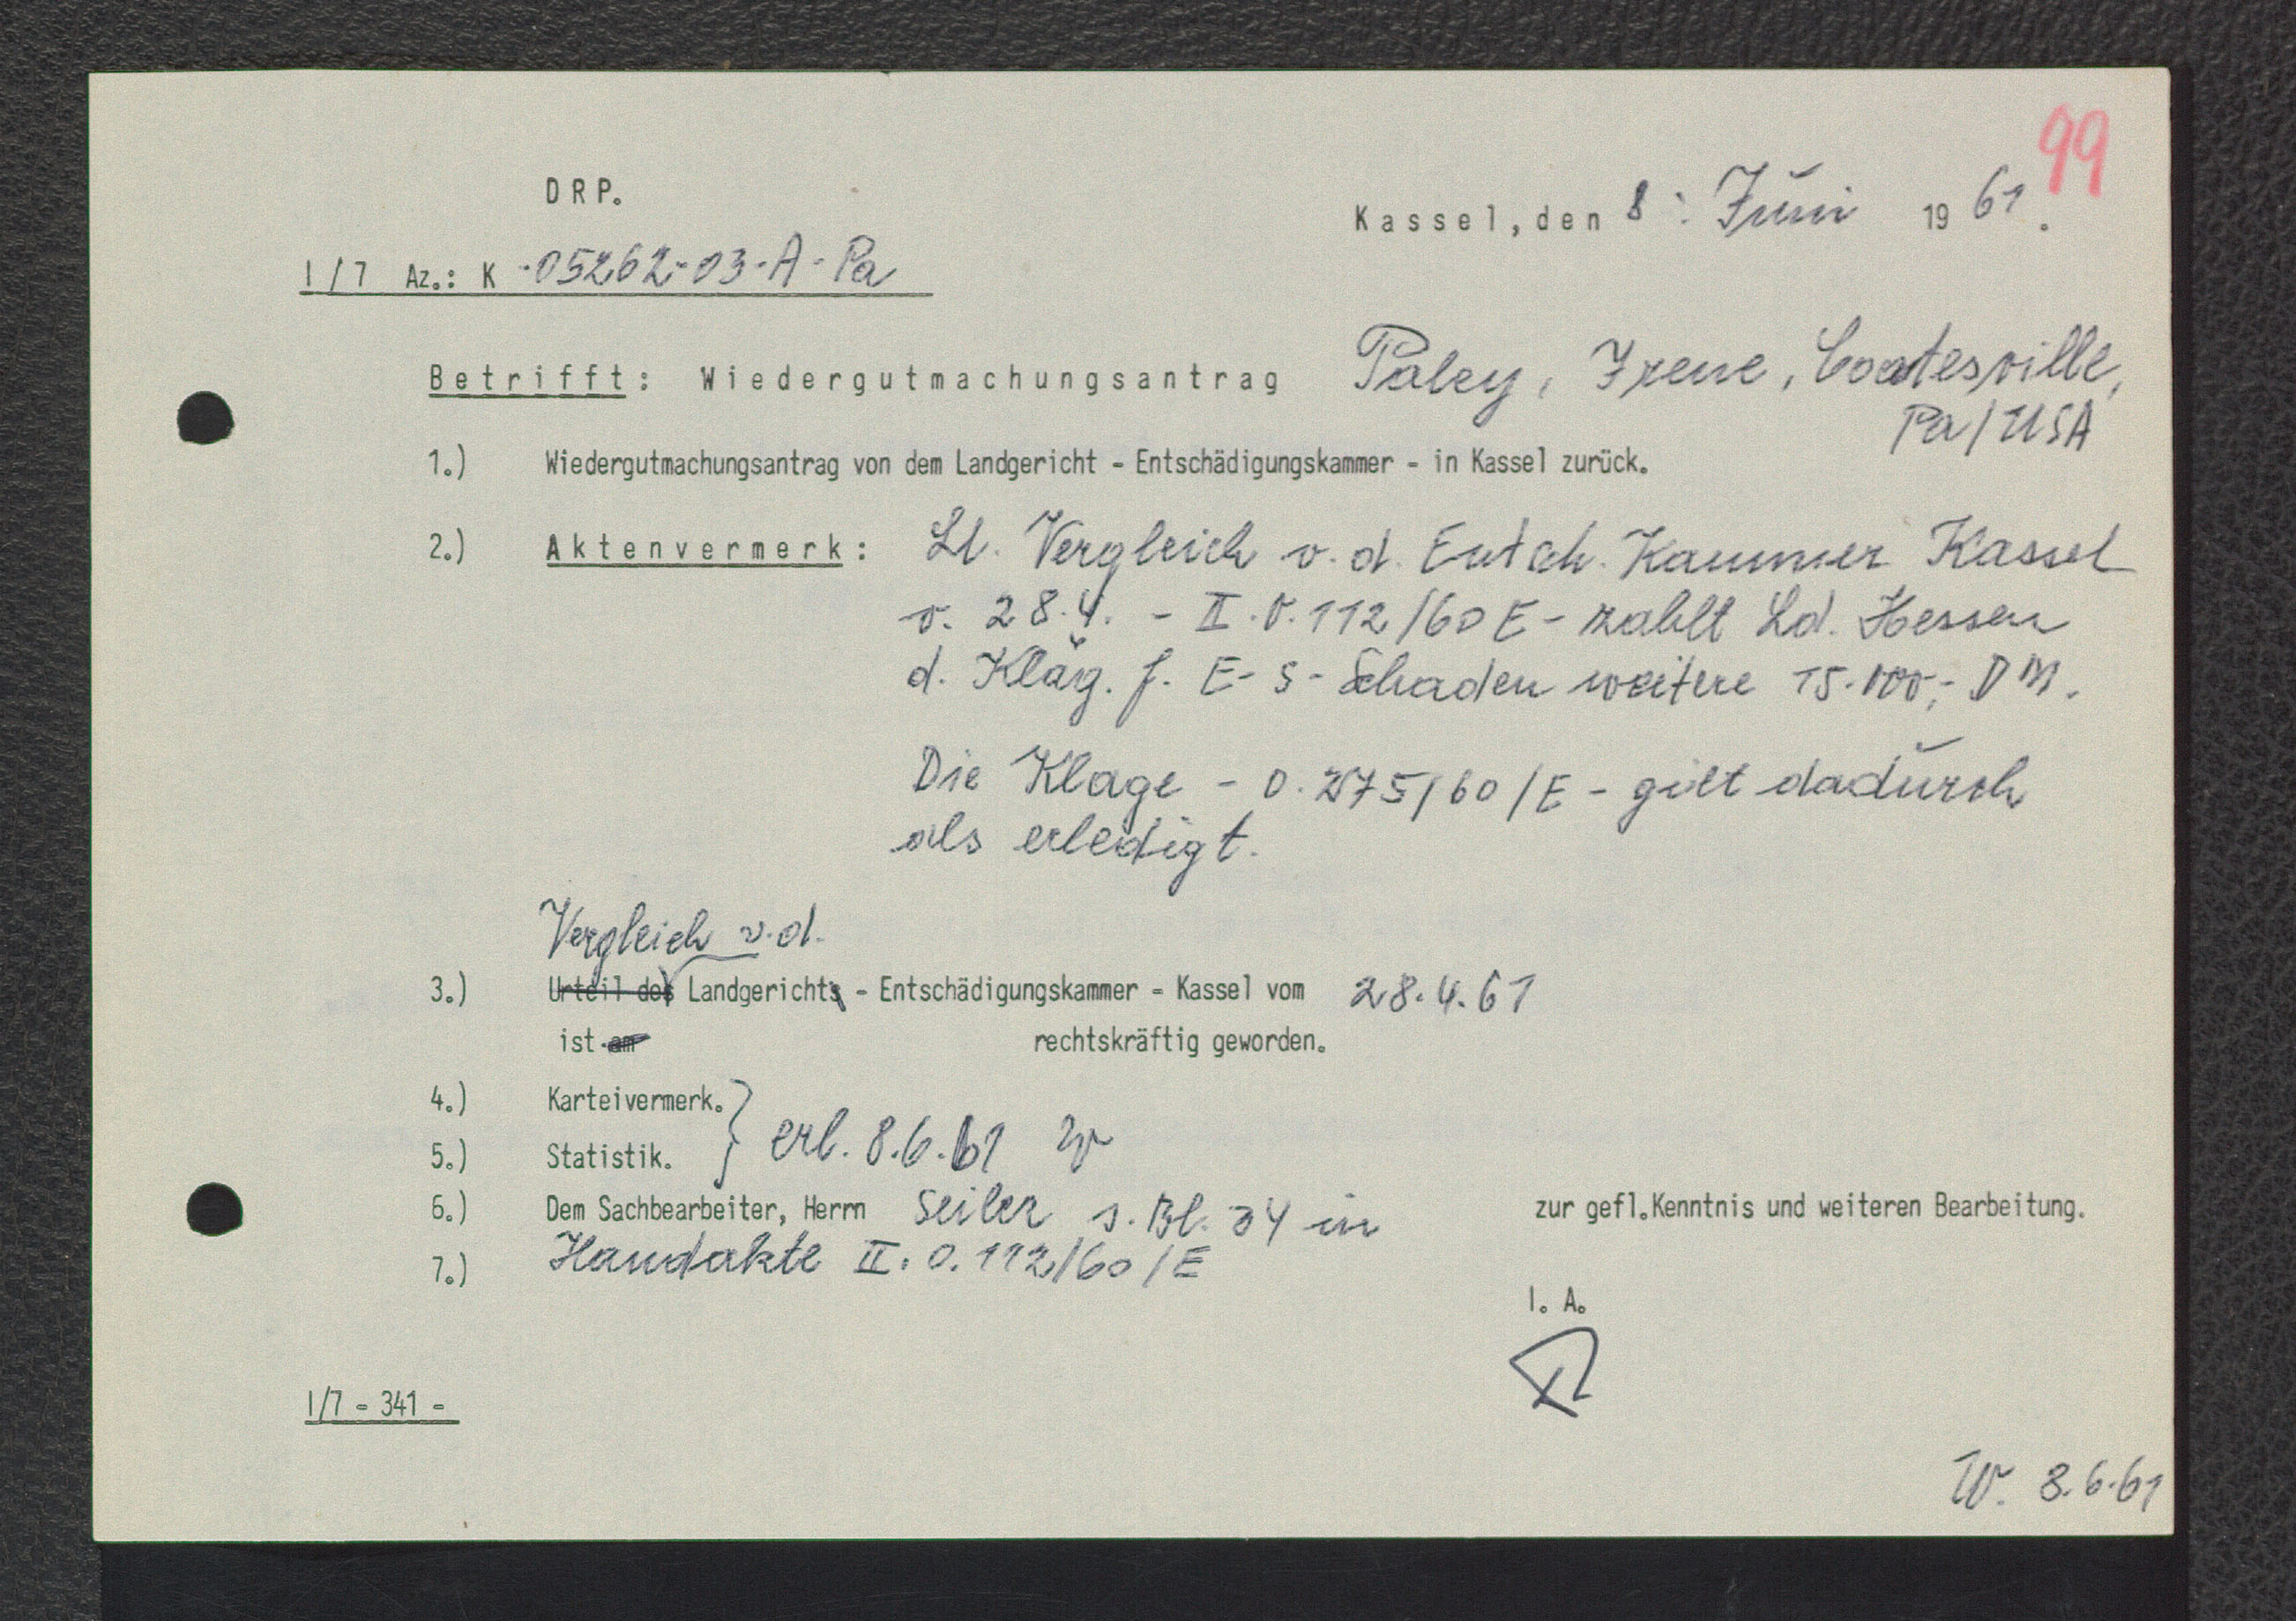 99
DRP.
Kassel, den 8. Juni 1961.
I/7 Az.: K -05262-03-A-Pa
Betrifft: Wiedergutmachungsantrag Paley, Irene, Coatesville,
Pa/USA
1.) Wiedergutmachungsantrag von dem Landgericht - Entschädigungskammer - in Kassel zurück.
2.) Aktenvermerk: Lt. Vergleich v. d. Entsch. Kammer Kassel
v. 28.4. - II.O.112/60 E - zahlt Ld. Hessen
d. Kläg. f. E-S-Schaden weitere 15.000,- DM.
Die Klage - O.275/60/E - gilt dadurch
als erledigt.
Vergleich v.d.
3.) Urteil des Landgerichts - Entschädigungskammer - Kassel vom 28.4.61
ist am rechtskräftig geworden.
4.) Karteivermerk.
erl. 8.6.61 W
5.) Statistik.
6.) Dem Sachbearbeiter, Herrn Seiler s. Bl. 34 in zur gefl.Kenntnis und weiteren Bearbeitung.
7.) Handakte II.O.112/60/E
I. A.
I/7 - 341 -
W. 8.6.61